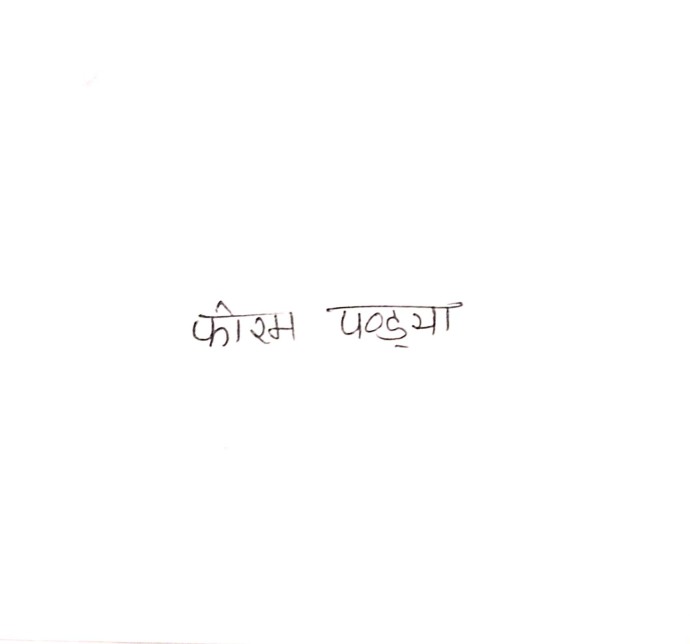 फोरम पण्ड्या